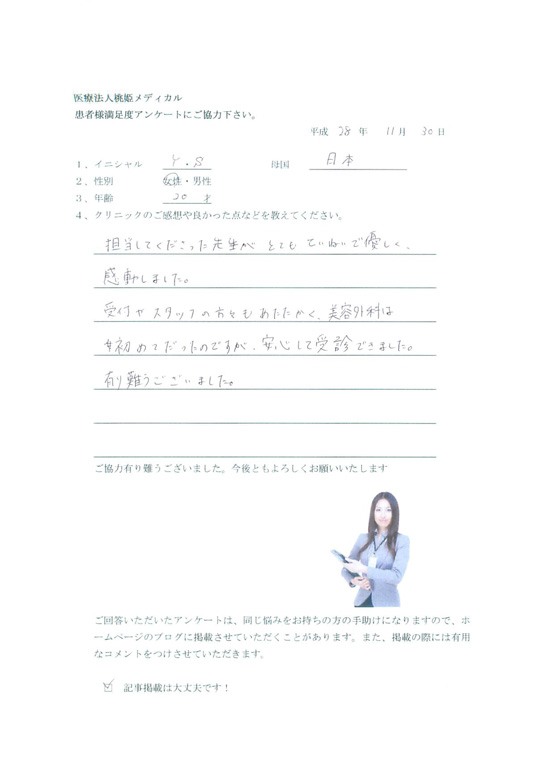 医療法人桃姫メディカル
患者様満足度アンケートにご協力下さい。
平成 28 年 11月 30日
1、イニシャル Y・S 母国 日本
2、性別 女性・男性
3、年齢 20 才
4、クリニックのご感想や良かった点などを教えてください。
担当してくださった先生が とても ていねいで優しく、
感動しました。
受付やスタッフの方々もあたたかく、美容外科は
初めてだったのですが、安心して受診できました。
有り難うございました。
ご協力有り難うございました。今後ともよろしくお願いいたします
ご回答いただいたアンケートは、同じ悩みをお持ちの方の手助けになりますので、ホ
ームページのブログに掲載させていただくことがあります。また、掲載の際には有用
なコメントをつけさせていただきます。
☑ 記事掲載は大丈夫です！